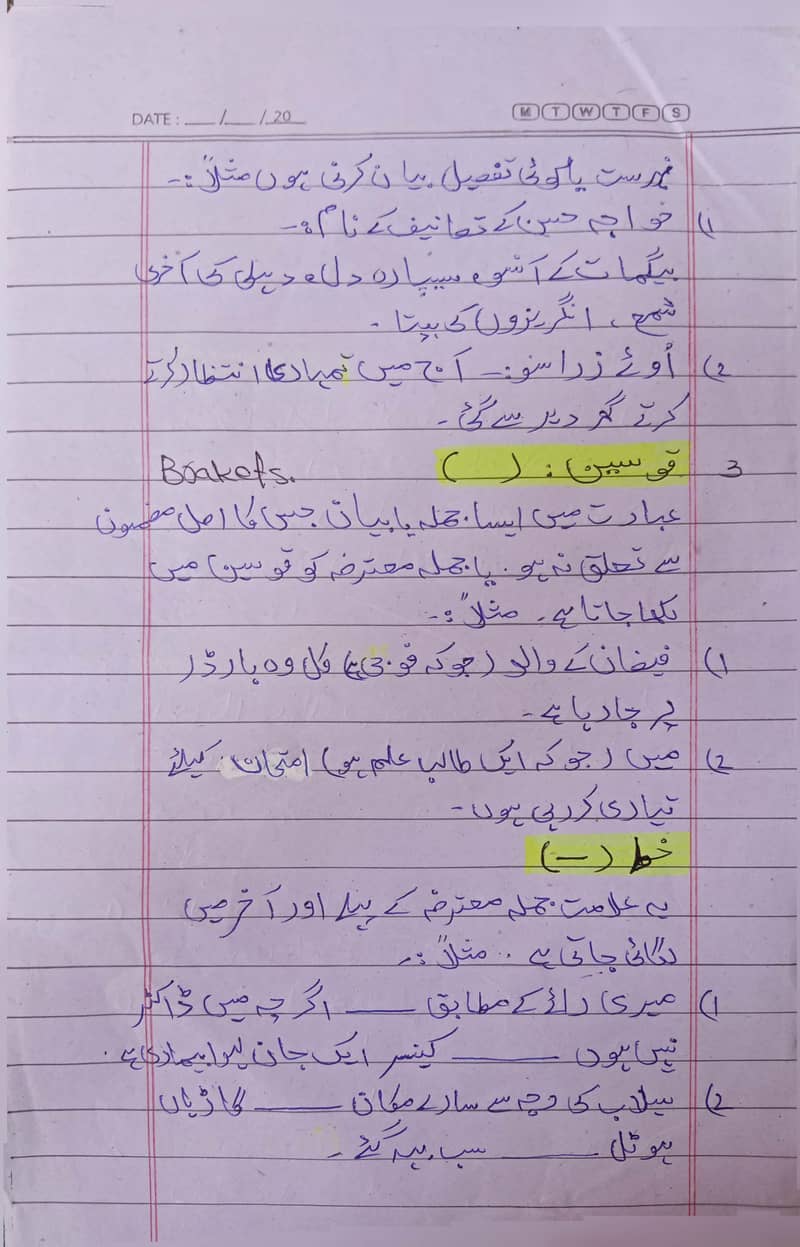 DATE : ___/___/ 20__
M T W T F S
فہرست یا کوئی تفصیل بیان کرنی ہوں مثلاً:-
1) خواجہ حسن کے تصانیف کے نام:-
بیگمات کے آنسو، سیپارہ دل، دہلی کی آخری
شمع، انگریزوں کی بپتا -
2) اُوئے ذرا سنو:- آج میں تمہارا انتظار کرتے
کرتے گھر دیر سے گئی -
3 قوسین: ( ) Brakets.
عبارت میں ایسا جملہ یا بیان جس کا اصل مضمون
سے تعلق نہ ہو. یا جملہ معترضہ کو قوسین میں
لکھا جاتا ہے۔ مثلاً:-
1) فیضان کے والد (جو کہ فوجی ہے) کل وہ بارڈر
پر جا رہا ہے -
2) میں (جو کہ ایک طالب علم ہو) امتحان کیلئے
تیاری کر رہی ہوں -
خط (—)
یہ علامت جملہ معترضہ کے پہلے اور آخر میں
لگائی جاتی ہے . مثلاً:-
1) میری رائے کے مطابق ___ اگر چہ میں ڈاکٹر
نہیں ہوں ___ کینسر ایک جان لیوا بیماری ہے .
2) سیلاب کی وجہ سے سارے مکان ___ گاڑیاں
ہوٹل ___ سب بہہ گئے -